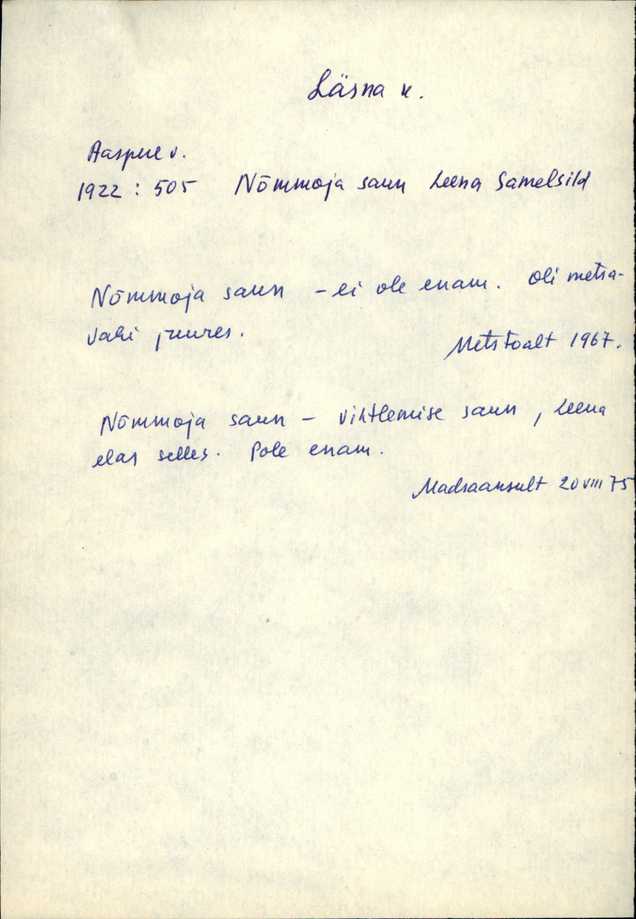 Läsna k.
Aaspere v.
1922 : 505 Nõmmoja saun Leena Samelsild
Nõmmoja saun - ei ole enam. Oli metsa-
vahi juures.
Metstoalt 1967.
Nõmmoja saun - vihtlemise saun, Leena
elas selles. Pole enam.
20 VIII 75